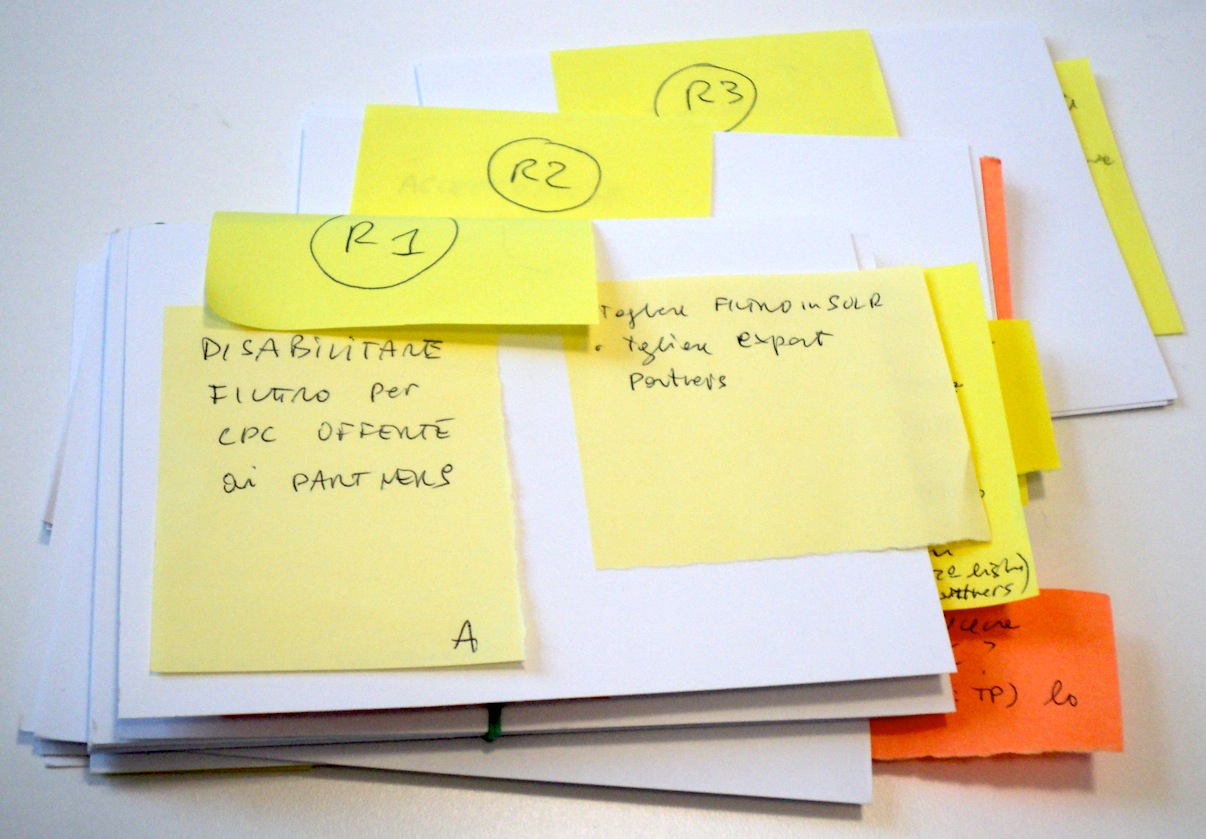 R3
R2
R1
DISABILITARE
FILTRO per
CPC OFFERTE
ai PARTNERS
A
Togliere FILTRO in SOLR
• togliere export
Partners
TP) lo